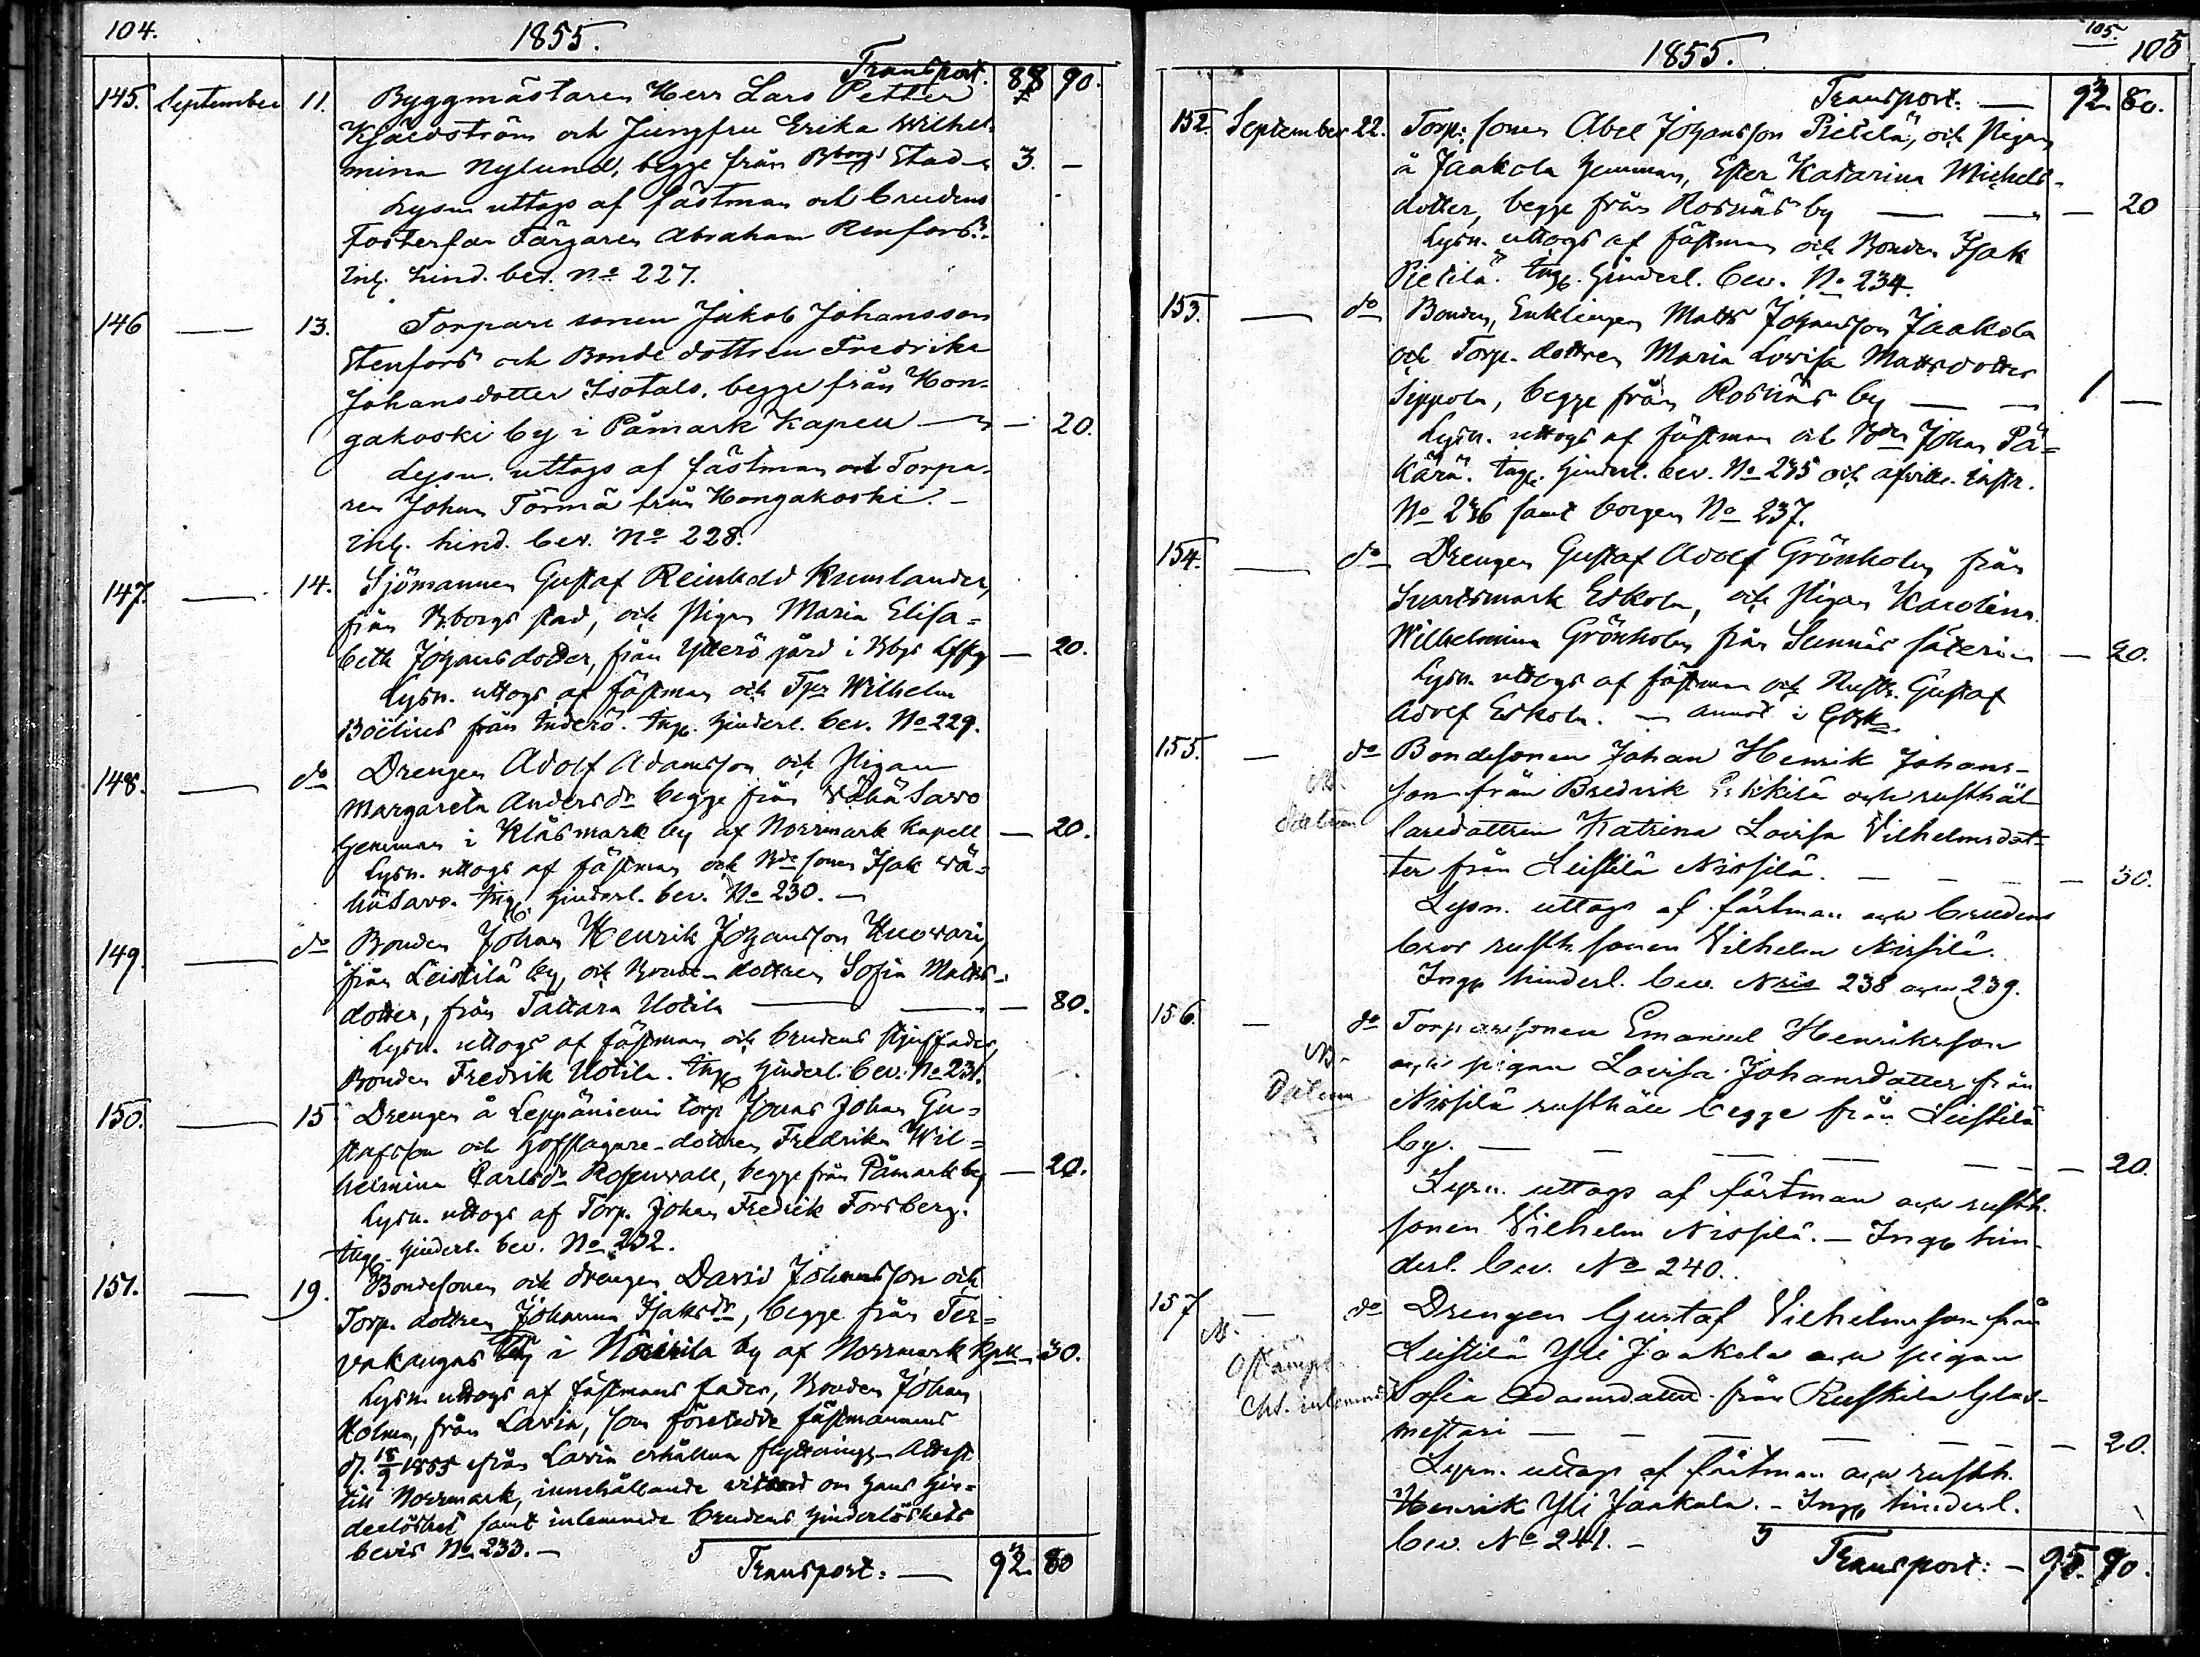 104.
1855.
Transport. 88 90.
145. September 11. Byggmästaren Herr Lars Petter
Kjäldström och Jungfru Erika Wilhel-
mina Nylund, begge från Bborgs Stad 3. -
Lysn uttogs af fästman och brudens
Fosterfar Färgaren Abraham Renfors.
Inl. hind. bev. No 227.
146 — 13. Torpare sonen Jakob Johansson
Stenfors och Bonde dottren Fredrika
Johansdotter Isotalo, begge från Hon-
gakoski by i Påmark Kapell — 20.
Lysn. uttogs af fästman och Torpa-
ren Johan Törmä från Hongakoski. -
Inl. hind. bev. No 228.
147. — 14. Sjömannen Gustaf Reinhold Kumlander,
från Bborgs stad, och Pigan Maria Elisa=
beth Johansdotter, från Ytterö gård i Bbgs Lffg — 20.
Lysn. uttogs af fästman och Tpr Wilhelm
Boëlius från Inderö. Ingg. hinderl. bev. No 229.
148. — do Drengen Adolf Adamsson och Pigan
Margareta Andersdr begge från Wähä Savo
hemman i Klåsmark by af Norrmark Kapell — 20.
Lysn. uttogs af fästman och Bde sonen Isak Wä-
häSavo. Ingg. hinderl. bev. No 230. —
149. — do Bonden Johan Henrik Johansson Knuvari,
från Leistilä by, och Bonden dottren Sofia Matts-
dotter, från Tattara Uotila — 80.
Lysn. uttogs af fästman och brudens stjuffader,
Bonden Fredrik Uotila. Ingg hinderl. bev. No 231.
150. — 15 Drengen å Leppäniemi torp Jonas Johan Gu=
stafsson och Hofslagare-dottren Fredrika Wil=
helmina Carlsdr Rosenvall, begge från Påmark by — 20.
Lysn. uttogs af Torp. Johan Fredrik Forsberg.
Ingg. hinderl. bev. No 232.
151. — 19. Bondesonen och drengen David Johansson och
Torp. dottren Johanna Isaksdr, begge från Ter=
vakangas i by af Norrmark Kpll 30.
Lysn. uttogs af fästmans fader, Bonden Johan
Holma, från Lavia, som företedde fästmannens
d. 18/9 1855 från Lavia erhållna flyttnings-Attest
till Norrmark, innehållande vittnord om hans hin=
derlöshet samt inlemnade brudens hinderlöshets
bevis No 233. —
Transport: — 92. 80
105.
105
1855.
Transport: — 92. 80.
152. September 22. Torp: sonen Abel Johansson Pietilä, och Pigan
å Jaakola hemman, Ester Katarina Michels-
dotter, begge från Rosnäs by — — 20
Lysn. uttogs af fästman och Bonden Isak
Pietilä. Ingg. hinderl. bev. No 234.
153. — do Bonden, Enklingen Matts Johansson Jaakola
och Torp. dottren Maria Lovisa Mattsdotter
Seppola, begge från Rosnäs by — 1 —
Lysn. uttogs af fästman och Bden Johan Pä=
kärä. Ingg. hinderl. bev. No 235 och afvitt. instr.
No 236 samt borgen No 237.
154. — do Drengen Gustaf Adolf Grönholm från
Svartsmark Eskola, och Pigan Karolina
Wilhelmina Grönholm från Sunnäs säteri — 20.
Lysn. uttogs af fästman och Rusth. Gustaf
Adolf Eskola. —
155. — do Bondesonen Johan Henrik Johans-
son från Bredvik och rusthål
laredottren Katrina Lovisa Vilhelmsdot-
ter från Leistilä Nissilä. — — — 30.
Lysn. uttogs af fästman och brudens
bror rusth. sonen Vilhelm Nissilä.
Ingg hinderl. bev. Nris 238 och 239.
156. — do Torparesonen Emanuel Henriksson
NB. Datum och pigan Lovisa Johansdotter från
Nissilä rusthåll begge från Leistilä
by. — — — — 20.
Lysn. uttogs af fästman och rusth.
sonen Vilhelm Nissilä. — Ingg hin-
derl. bev. No 240.
157 — do Drengen Gustaf Vilhelmsson från
Leistilä Yli Jaakola och pigan
Sofia Adamsdotter från Ruskila Glas-
mestari — — — — 20.
Lysn. uttogs af fästman och rusth.
Henrik Yli Jaakola. - Ingg hinderl.
bev. No 241. -
Transport: — 95. 90.